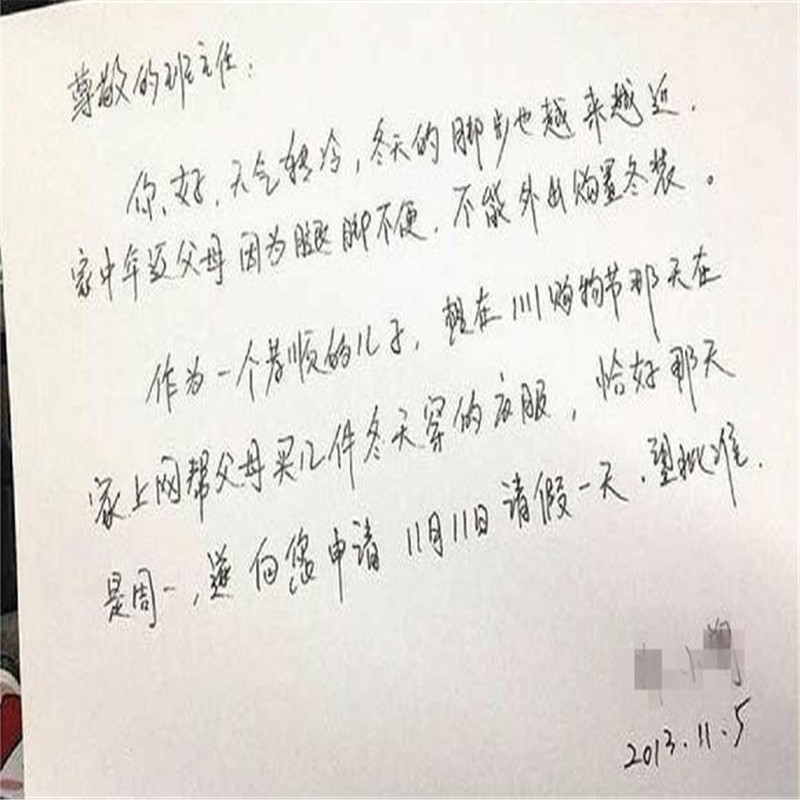 尊敬的班主任：
你好，天气转冷，冬天的脚步也越来越近．
家中年迈父母因为腿脚不便．不能外出购置冬装。
作为一个孝顺的儿子，想在川购物节那天在
家上网帮父母买几件冬天穿的衣服，恰好那天
是周一，遂向您申请11月11日请假一天．望批准．
2013.11.5